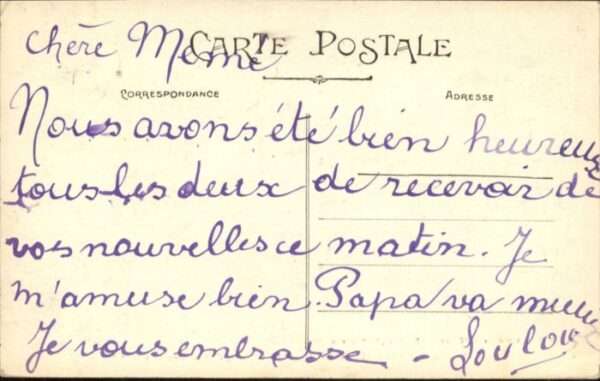 Chère Mémé
CARTE POSTALE
CORRESPONDANCE
ADRESSE
Nous avons été bien heureux
tous les deux de recevoir de
vos nouvelles ce matin. Je
m'amuse bien. Papa va mieux
Je vous embrasse - Loulou